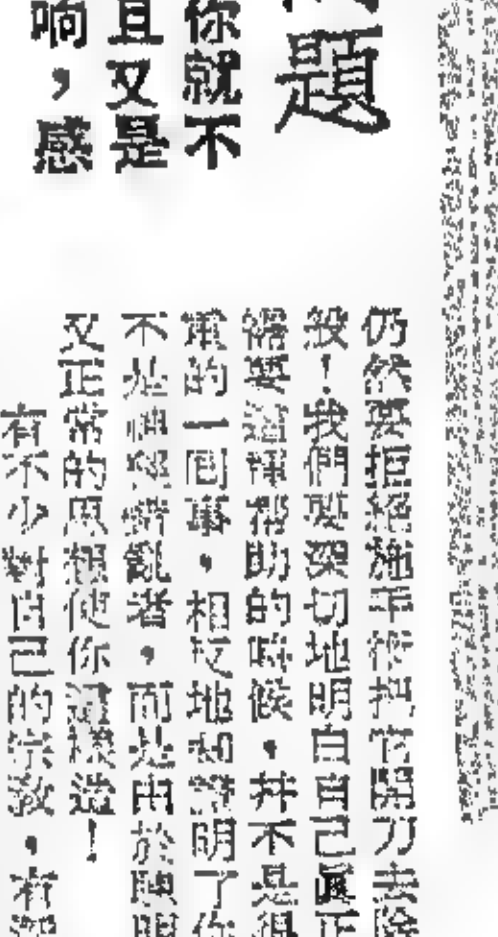 題
你就不
且又是
响，感
仍然要拒絕施手術把它開刀去除
般！我們要深切地明白自己眞正
需要這種幫助的時候，并不是很
重的一回事，相反地却證明了你
不是神經錯亂者，而是由於聰明
又正常的思想使你這樣做！
有不少對自己的宗教，有